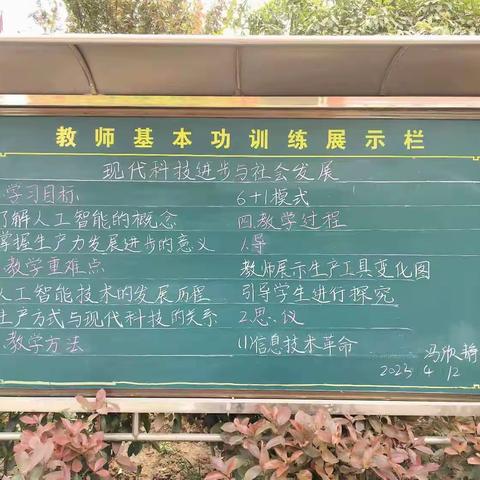 教师基本功训练展示栏
现代科技进步与社会发展
.学习目标
了解人工智能的概念
掌握生产力发展进步的意义
.教学重难点
人工智能技术的发展历程
生产方式与现代科技的关系
.教学方法
6+1模式
四.教学过程
1.导
教师展示生产工具变化图
引导学生进行探究
2.思、议
(1)信息技术革命
冯欣静
2023 4 12